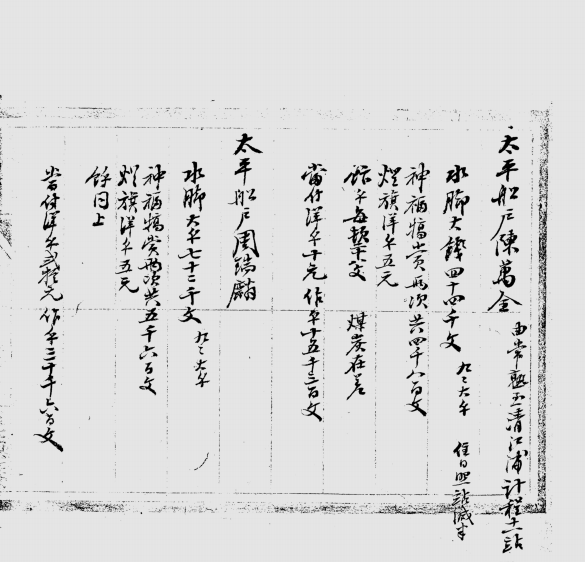 太平船戶陳萬全 由常熟至清江浦計程十一站
水脚大錢四十四千文 九三大千 住日照一站減半
神福犒賞兩次共四千八百文
燈旗洋錢五元
餘每千文 煤炭在差
當付洋錢十元作錢十五千三百文
太平船戶周瑞麟
水脚大錢七十二千文 九三大千
神福犒賞兩次共五千六百文
燈旗洋錢五元
餘同上
當付洋錢貳拾元作錢三十千六百文